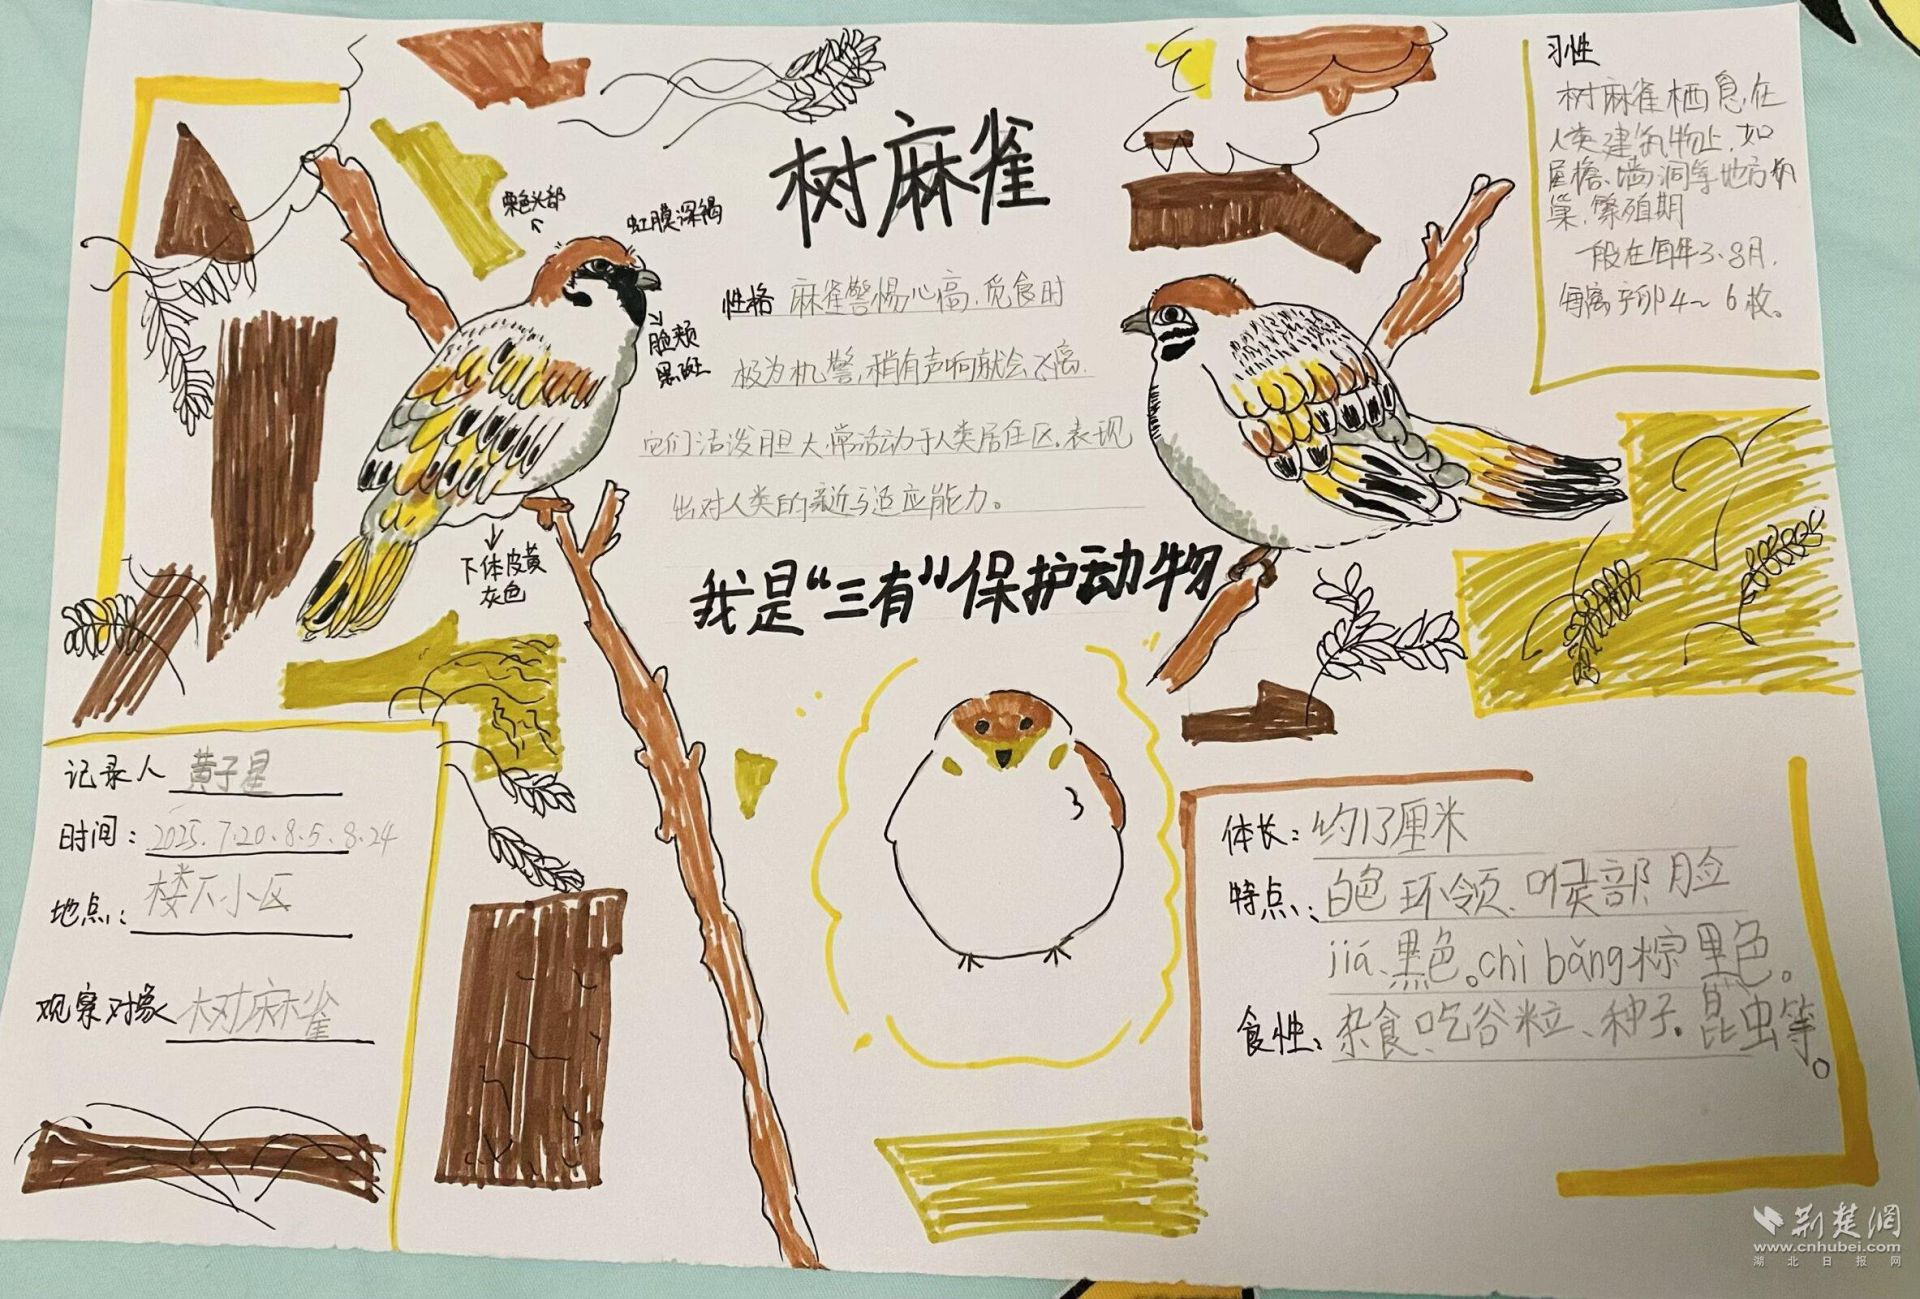 树麻雀
栗色头部
虹膜深褐
脸颊
黑斑
下体皮黄
灰色
性格 麻雀警惕心高,觅食时
极为机警,稍有声响就会飞离.
它们活泼胆大,常活动于人类居住区,表现
出对人类的亲近与适应能力。
我是“三有”保护动物
习性
树麻雀栖息在
人类建筑物上,如
屋檐、墙洞等地方筑
巢,繁殖期
一般在每年3-8月.
每窝产卵4~6枚。
记录人 黄子星
时间:2025.7.20、8.5、8.24
地点:楼下小区
观察对象 树麻雀
体长:约13厘米
特点:白色环领、喉部、脸
jiá、黑色。chì bǎng棕黑色。
食性:杂食、吃谷粒、种子、昆虫等。
荆楚网
www.cnhubei.com
湖北日报网